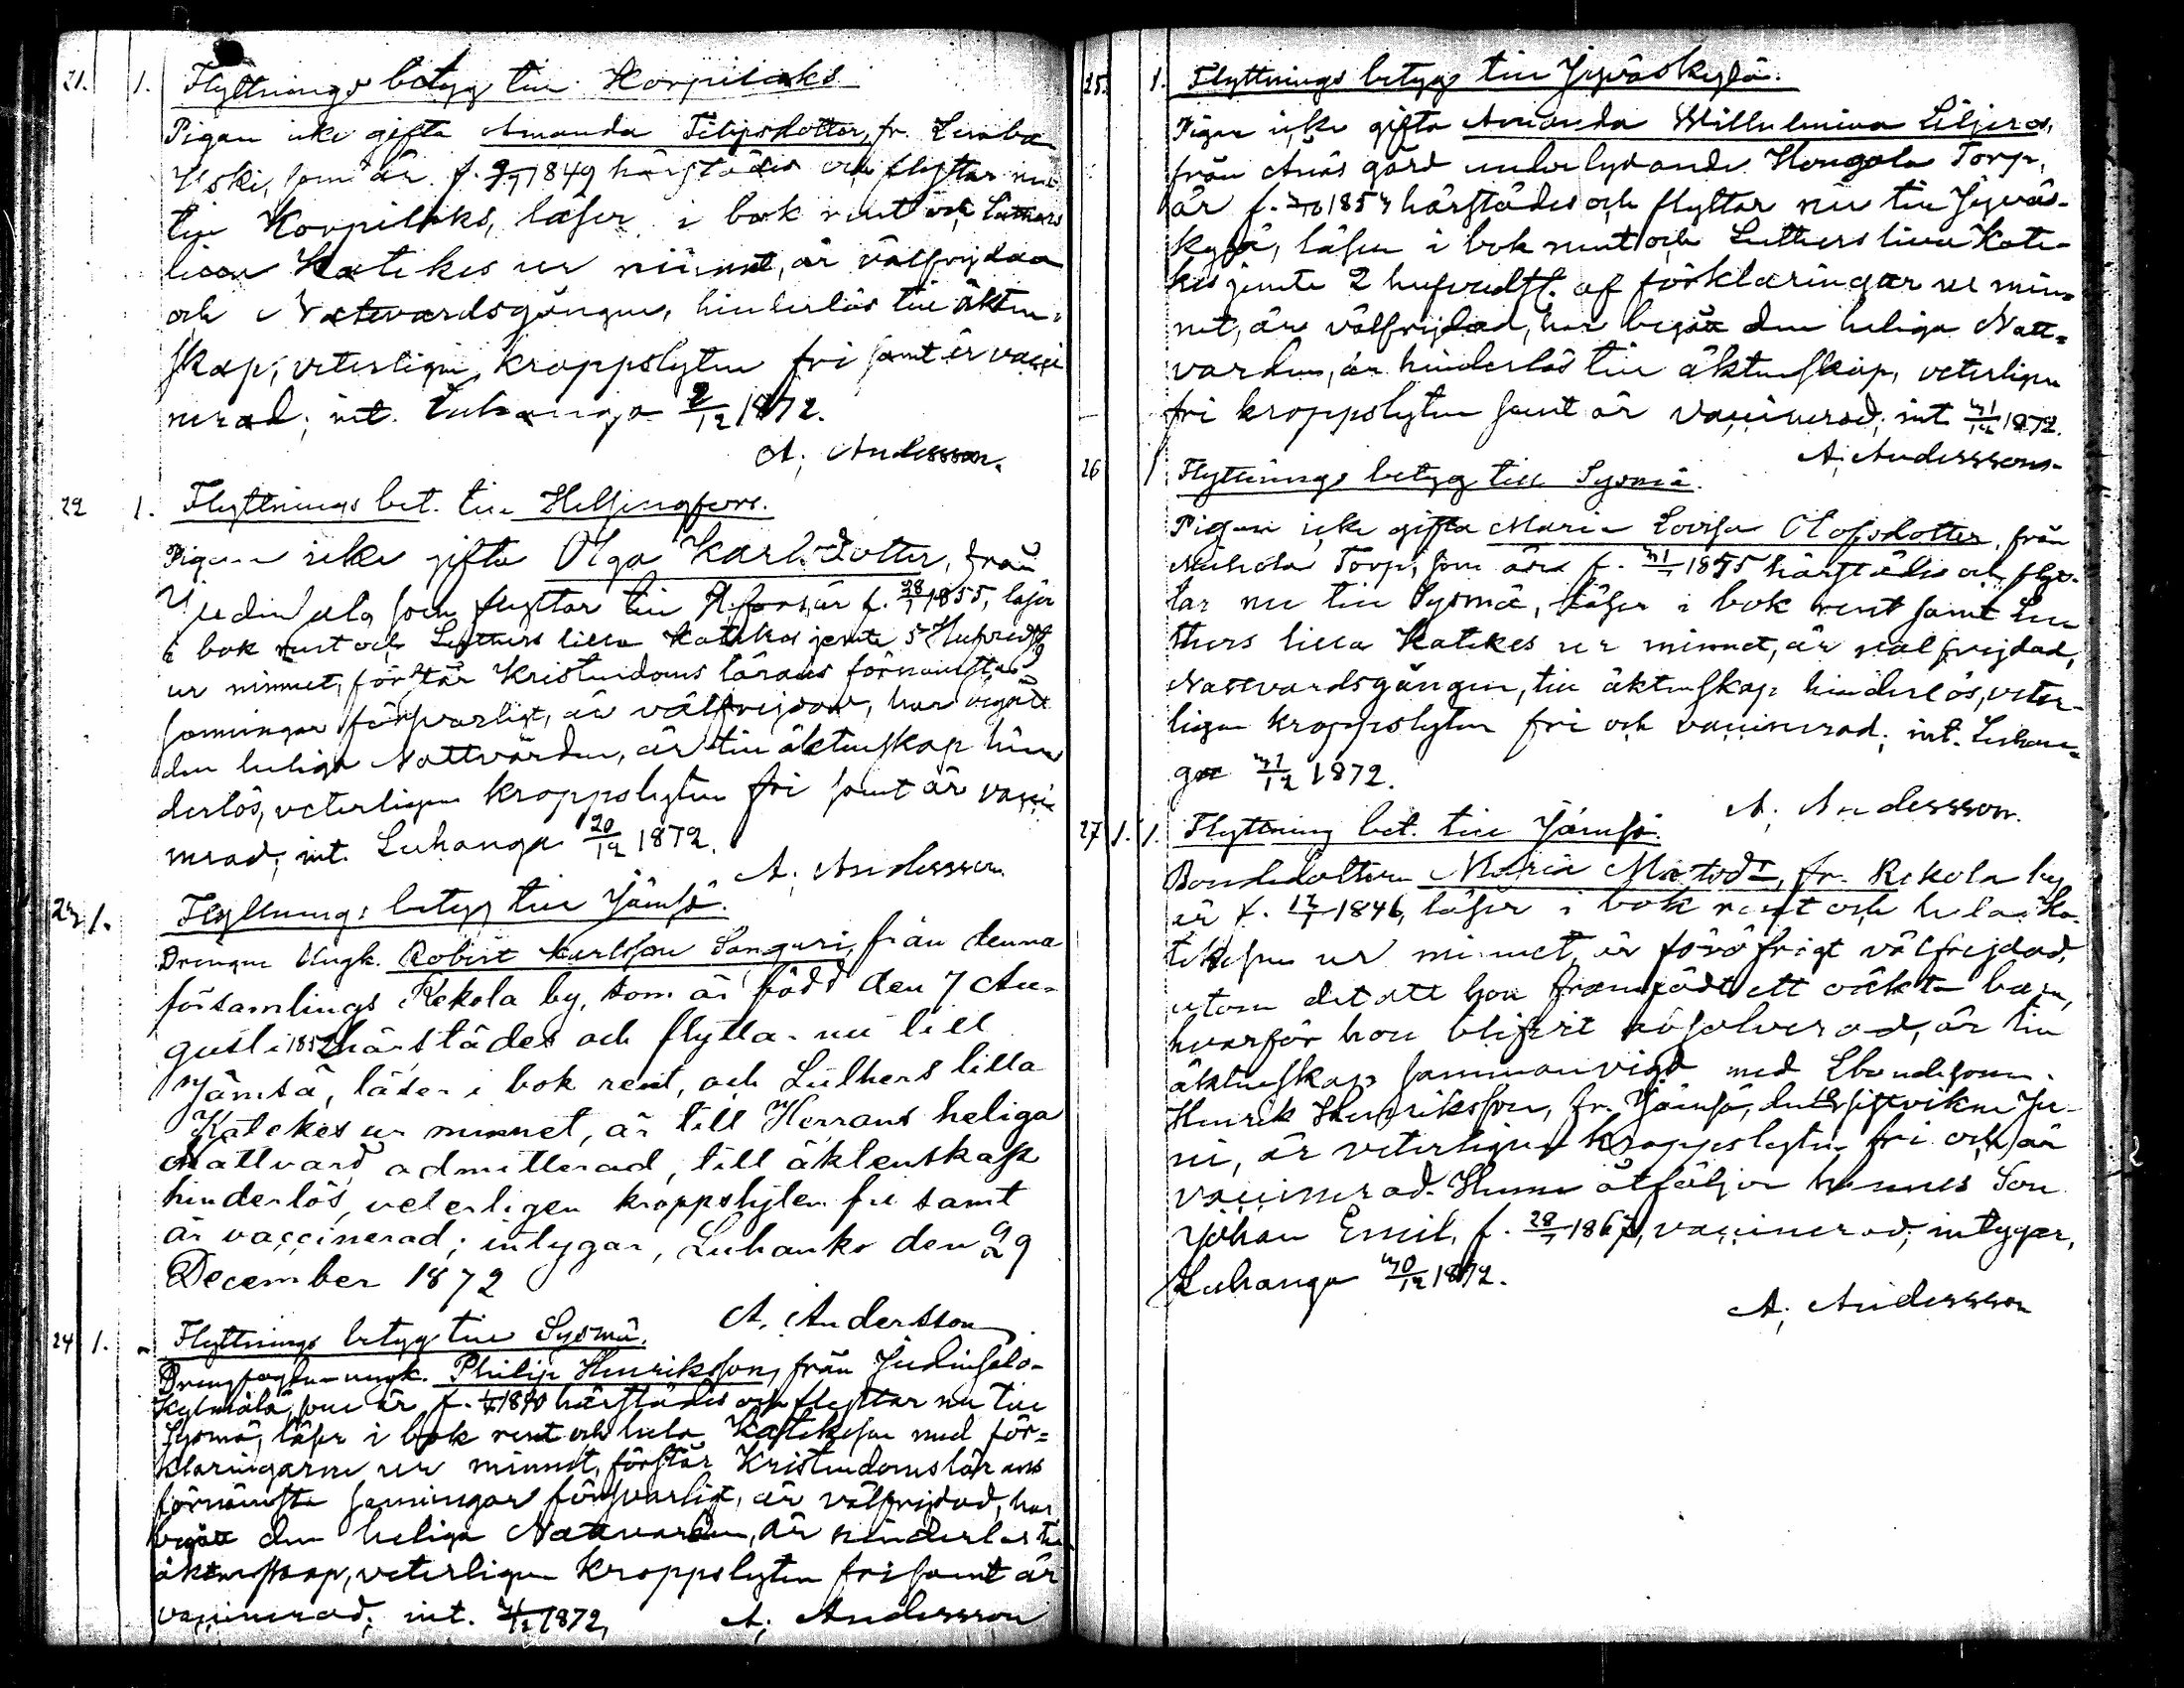 21. 1. Flyttnings betyg till Korpilaks
Pigan icke gifta Amanda Filipsdotter, fr.
som är f. 1849 härstädes och flyttar nu
till Korpilaks, läser i bok rent och Luthers
lilla Katekes ur minnet, är välfrejdad
och Nattvardsgången, hinderlös till äkten-
skap, veterligen kroppslyten fri samt är vacci
nerad; int. Luhanga 2/12 1872.
A. Andersson.
22 1. Flyttnings bet. till Helsingfors.
Pigan icke gifta Olga Karlsdotter, från
Judinsalo som flyttar till H:fors, är f. 28/1 1855, läser
i bok rent och Luthers lilla Katekes jemte 5 Hufvudst.
ur minnet, förstår Kristendoms lärans förnämsta
sanningar försvarligt, är välfrejdad, har begått
den heliga Nattvarden, är till äktenskap hin
derlös, veterligen kroppslyten fri samt är vacci
nerad; int. Luhanga 20/12 1872.
A. Andersson
23 1. Flyttnings betyg till Jämsä.
Drengen Ungk. Robert Karlsson Sanguri, från denna
församlings Rekola by, som är född den 7 Au-
gusti 1852 härstädes och flyttar nu till
Jämsä, läser i bok rent, och Luthers lilla
Katekes ur minnet, är till Herrans heliga
Nattvard admitterad, till äktenskap
hinderlös, veterligen kroppslyten fri samt
är vaccinerad; intygar, Luhanko den 29
December 1872
A. Andersson
24 1. Flyttnings betyg till Sysmä.
ungk. Philip Henriksson, från Judinsalo
Kylmälä, som är f. 1840 härstädes och flyttar nu till
Sysmä, läser i bok rent och hela Katekesen med för=
klaringarne ur minnet, förstår Kristendomslärans
förnämsta sanningar försvarligt, är välfrejdad, har
begått den heliga Nattvarden, är hinderlös till
äktenskap, veterligen kroppslyten fri samt är
vaccinerad; int. 1872,
A. Andersson
25. 1. Flyttnings betyg till Jyväskylä.
Pigan icke gifta Amanda Willhelmina Liljeros,
från Anäs gård underlydande Hongola Torp,
är f. 1854 härstädes och flyttar nu till Jyväs-
kylä, läser i bok rent och Luthers lilla Kate-
kes jemte 2 hufvudst. af förklaringar ur min-
net, är välfrejdad, har begått den heliga Natt=
varden, är hinderlös till äktenskap, veterligen
fri kroppslyten samt är vaccinerad; int 31/12 1872.
A. Andersson
26 1 Flyttnings betyg till Sysmä.
Pigan icke gifta Maria Lovisa Olofsdotter, från
Torp, som är f. 1855 härstädes och flyt-
tar nu till Sysmä, läser i bok rent samt Lu
thers lilla Katekes ur minnet, är välfrejdad,
Nattvardsgången, till äktenskap hinderlös, veter-
ligen kroppslyten fri och vaccinerad; int. Luhan=
ga 31/12 1872.
A. Andersson.
27 1. 1. Flyttning bet. till Jämsä.
Bondedottern Maria Matsd:r, fr. Rekola by
är f. 1846, läser i bok rent och hela Ka-
tekesen ur minnet, är föröfrigt välfrejdad,
utom det att hon framfödt ett oäkta barn,
hvarför hon blifvit absolverad, är till
äktenskap sammanvigd med
Henrik Henriksson, fr. Jämsä, Ju-
ni, är veterligen kroppslyten fri och är
vaccinerad. Henne åtföljer hennes Son
Johan Emil, f. 1867, vaccinerad; intygar,
Luhanga 30/12 1872.
A. Andersson